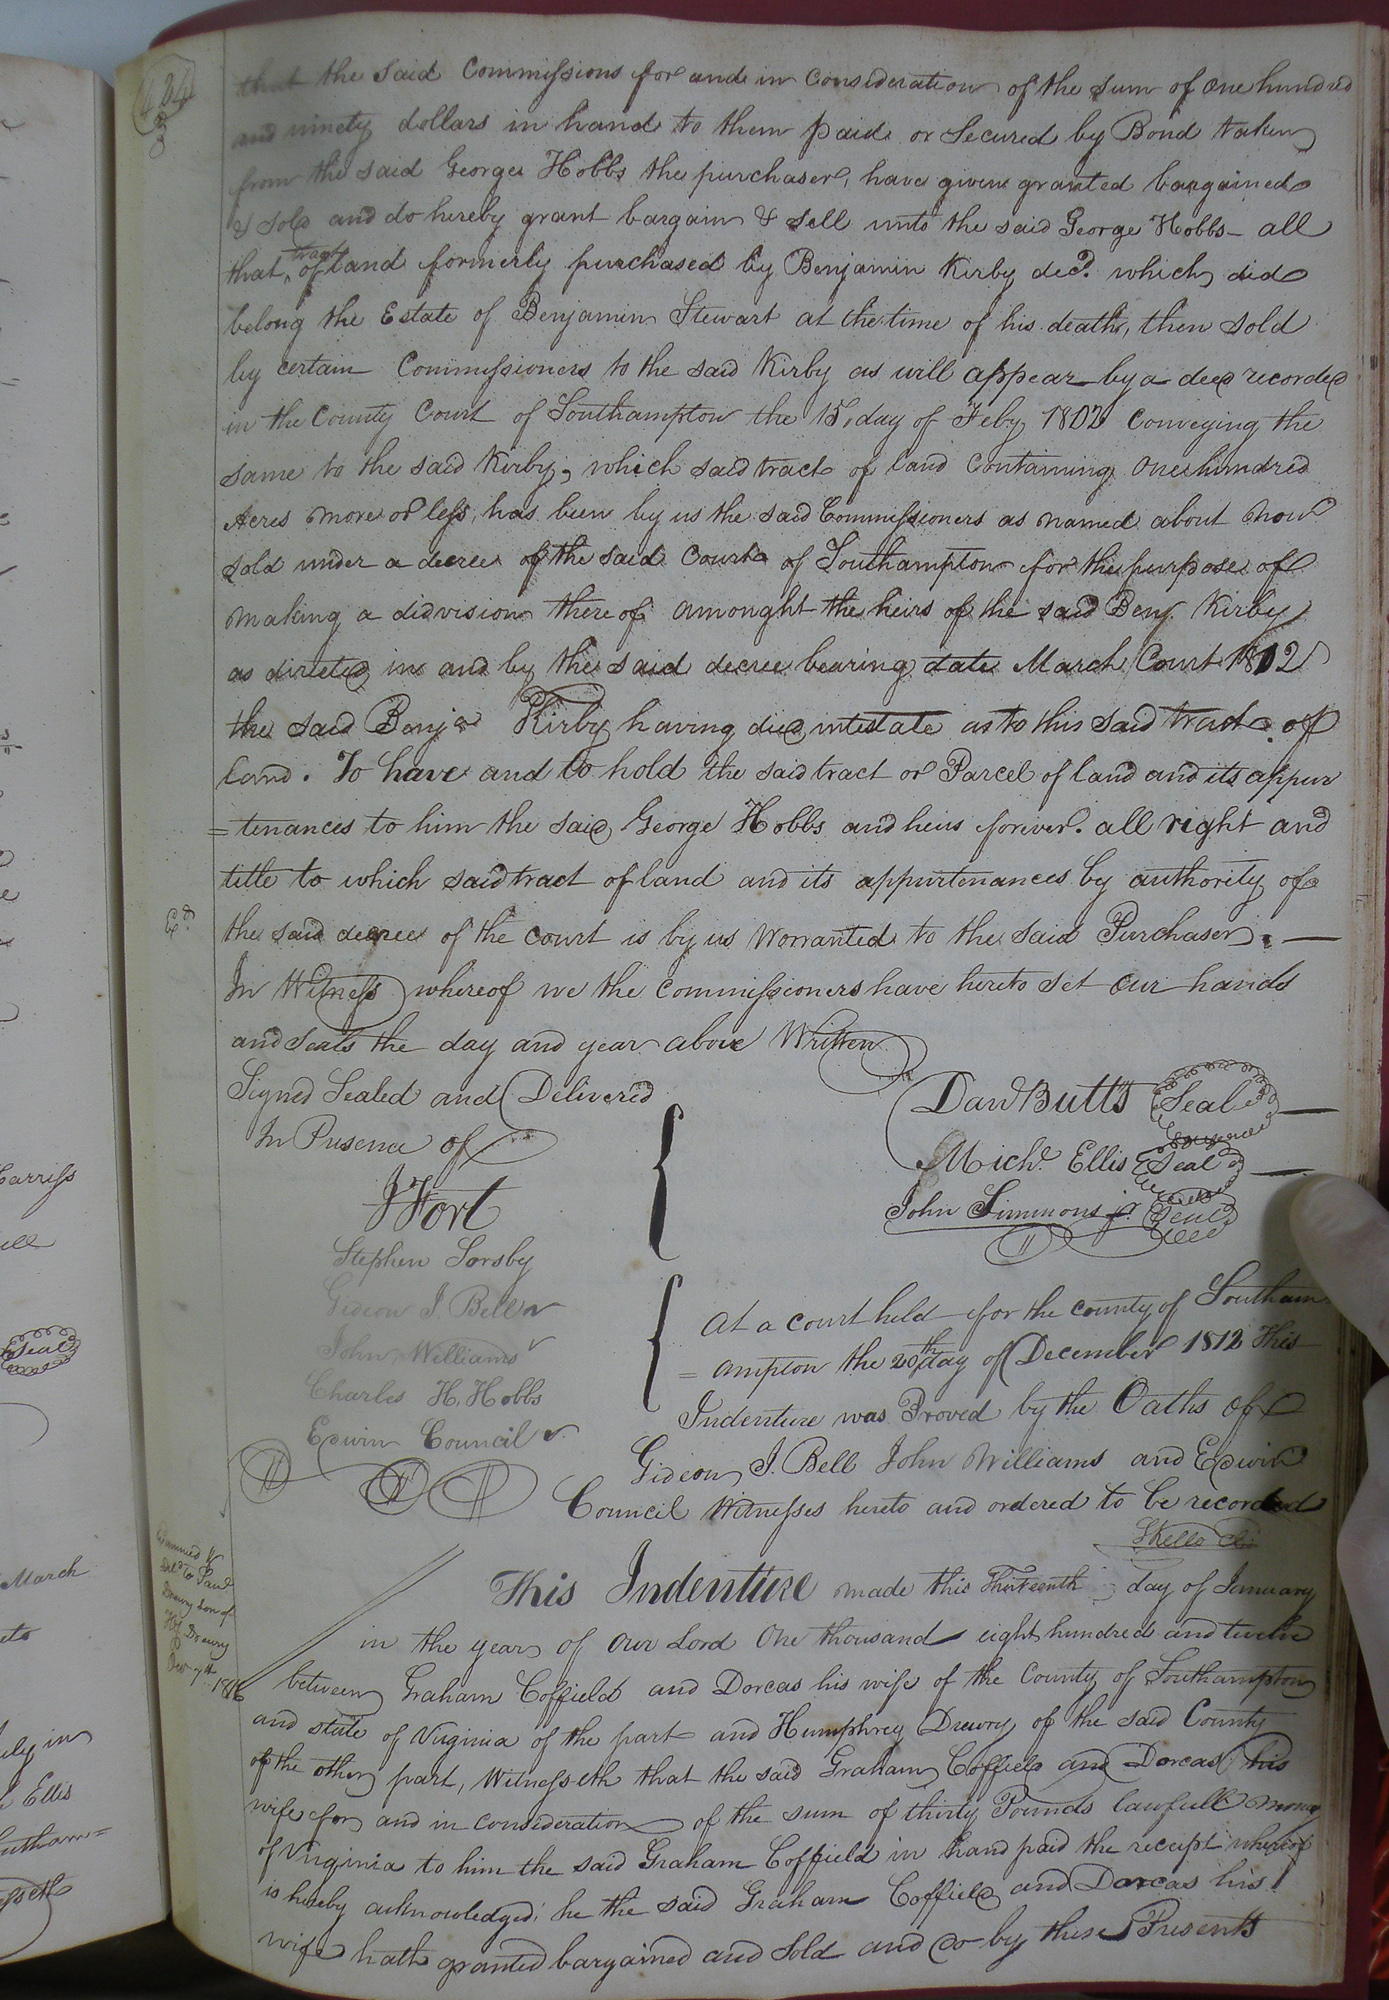 424
that the said Commissions for and in Consideration of the sum of one hundred
and ninety dollars in hand to them paid or Secured by Bond taken
from the said George Hobbs the purchaser, have given granted bargained
& sold and do hereby grant bargain & sell unto the said George Hobbs - all
that tract of land formerly purchased by Benjamin Kirby decd. which did
belong the Estate of Benjamin Stewart at the time of his death, then sold
by certain Commissioners to the said Kirby as will appear by a deed recorded
in the County Court of Southampton the 15, day of Feby 1802 Conveying the
same to the said Kirby, which said tract of land Containing one hundred
Acres more or less, has been by us the said Commissioners as named about now
sold under a decree of the said Court of Southampton for the purpose of
making a didvision there of amonght the heirs of the said Benj. Kirby
as directed in and by the said decree bearing date March Court 1812
the said Benja Kirby having died intestate as to this said tract of
land. To have and to hold the said tract or Parcel of land and its appur
=tenances to him the said George Hobbs and heirs forever. all right and
title to which said tract of land and its appurtenances by authority of
the said decree of the court is by us Worranted to the said Purchaser. —
In Witness whereof we the Commissioners have hereto set our hands
and seals the day and year above Written
Signed Sealed and Delivered
In Presence of
Daw Butts Seal
Michl. Ellis Seal
John Simmons jr. Seal
JFort
Stephen Sorsby
Gideon J. Bell
John Williams
Charles H. Hobbs
Edwin Council
At a court held for the county of Southam
= ampton the 20th day of December 1812 This
Indenture was Proved by the Oaths of
Gideon J. Bell John Williams and Edwin
Council Witnesses hereto and ordered to be recorded
SKello Clk
Examined &
Deld. to Paul
Drewry Son of
H. Drewry
Decr 7th 1816
This Indenture made this Thirteenth day of January
in the year of our Lord One thousand eight hundred and twelve
between Graham Coffield and Dorcas his wife of the County of Southampton
and state of Virginia of the part and Humphrey Drewry of the said County
of the other part, Witnesseth that the said Graham Coffield and Dorcas his
wife for and in consideration of the sum of thirty Pounds lawfull money
of Virginia to him the said Graham Coffield in hand paid the receipt whereof
is hereby acknowledged, he the said Graham Coffield and Dorcas his
wife hath granted bargained and Sold and do by these Presents